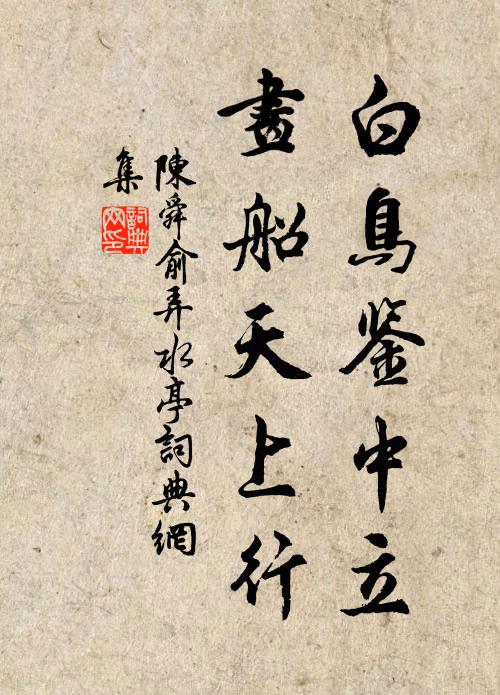 白鳥鉴中立
畫船天上行
陳舜俞弄水亭詞典網
集
詞典
网印